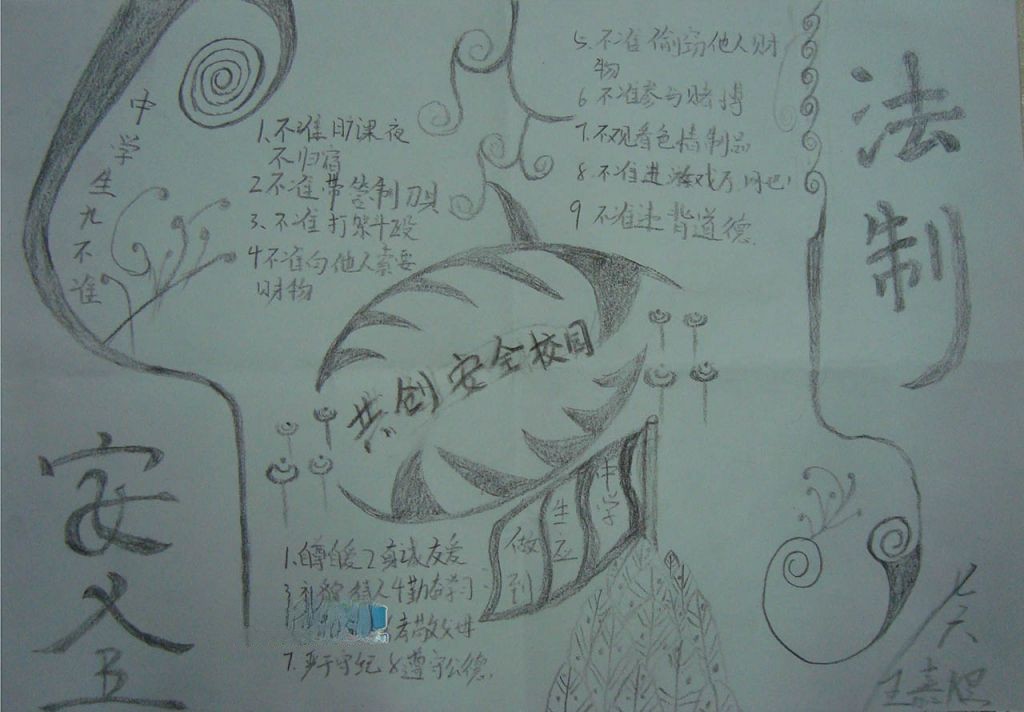 中学生九不准
1.不准旷课夜
不归宿
2不准带管制刀具
3、不准打架斗殴
4不准向他人索要
财物
5.不准偷窃他人财
物
6不准参与赌博
7.不观看色情制品
8.不准进游戏厅,网吧!
9不准违背道德.
法制
共创安全校园
安全
中学
生应
做到
1.自尊自爱2真诚友爱
3礼貌待人4勤奋学习
孝敬父母
7.严于守纪8遵守公德.
七六